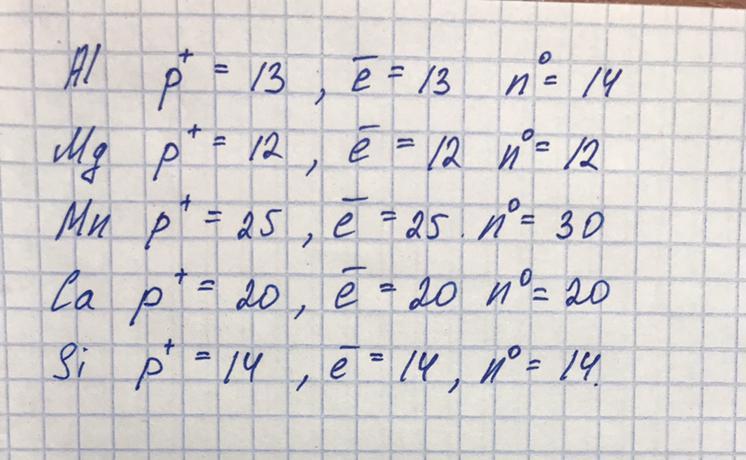 Al p⁺ = 13, e̅ = 13 n⁰ = 14
Mg p⁺ = 12, e̅ = 12 n⁰ = 12
Mn p⁺ = 25, e̅ = 25. n⁰ = 30
Ca p⁺ = 20, e̅ = 20 n⁰ = 20
Si p⁺ = 14, e̅ = 14, n⁰ = 14.